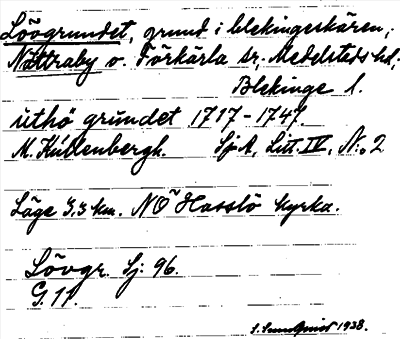 Lövgrundet, grund i blekingeskären,
Nättraby o. Förkärla sr, Medelsteds hd,
Blekinge l.
ŭthö grŭndet 1717-1747
M. Kŭllenbergh. SjA, Litt. IV, N:o 2
Läge 3,3 km. NO Hasslö kyrka.
Lövgr. Sj: 96.
G. 11.
S. Sundqvist 1938.